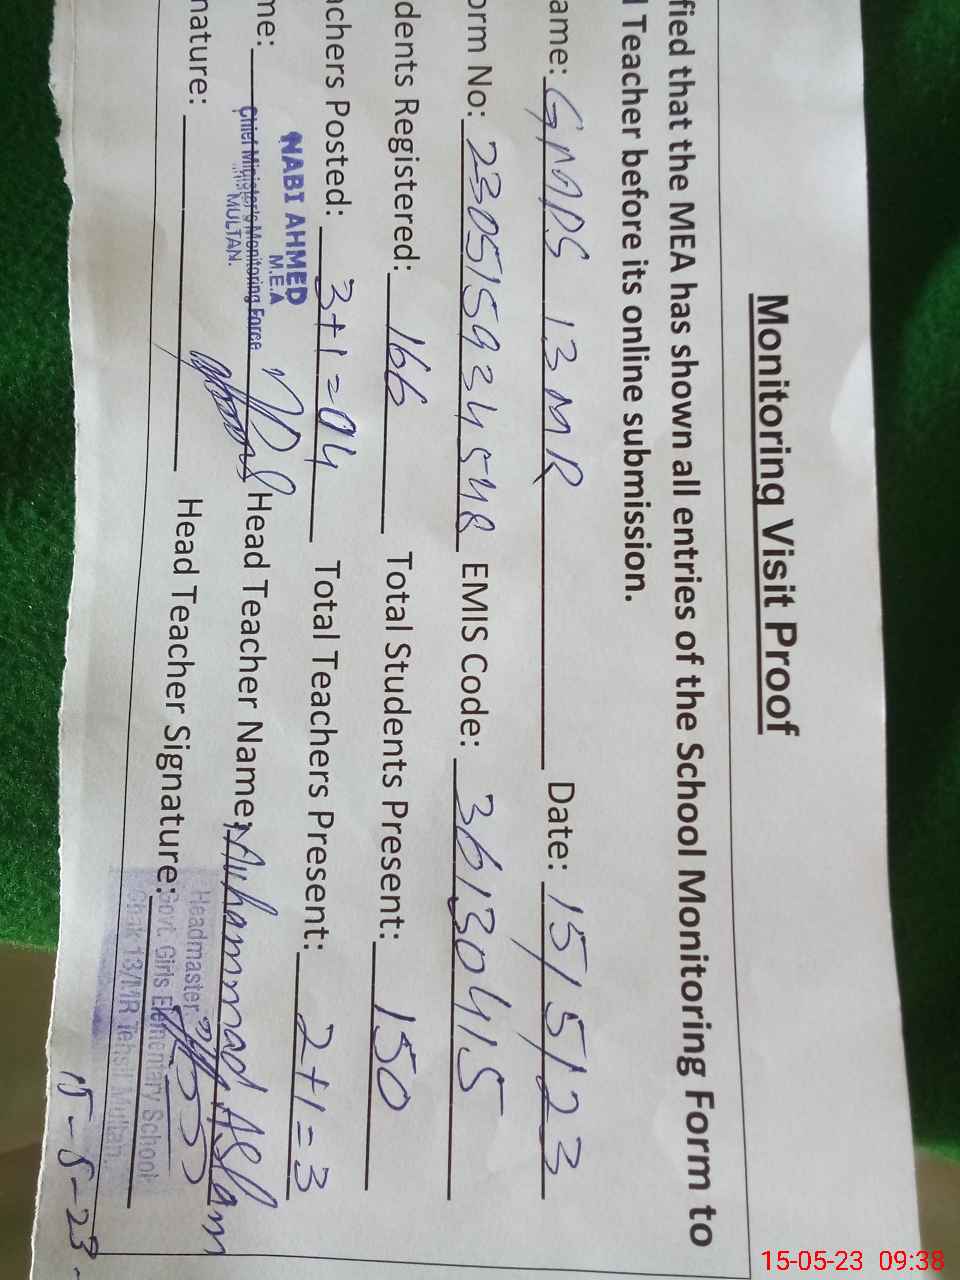 Monitoring Visit Proof
fied that the MEA has shown all entries of the School Monitoring Form to
Teacher before its online submission.
ame: GMPS 13 MR Date: 15/5/23
orm No: 230515934548 EMIS Code: 36130415
dents Registered: 166 Total Students Present: 150
chers Posted: 3+1=04 Total Teachers Present: 2+1=3
NABI AHMED
M.E.A
me: Head Teacher Name: Muhammad Aslam
Chief Minister's Monitoring Force
MULTAN.
nature: Head Teacher Signature:
Headmaster
Govt. Girls Elementary School
Chak 13/MR Tehsil Multan.
15-5-23
15-05-23 09:38